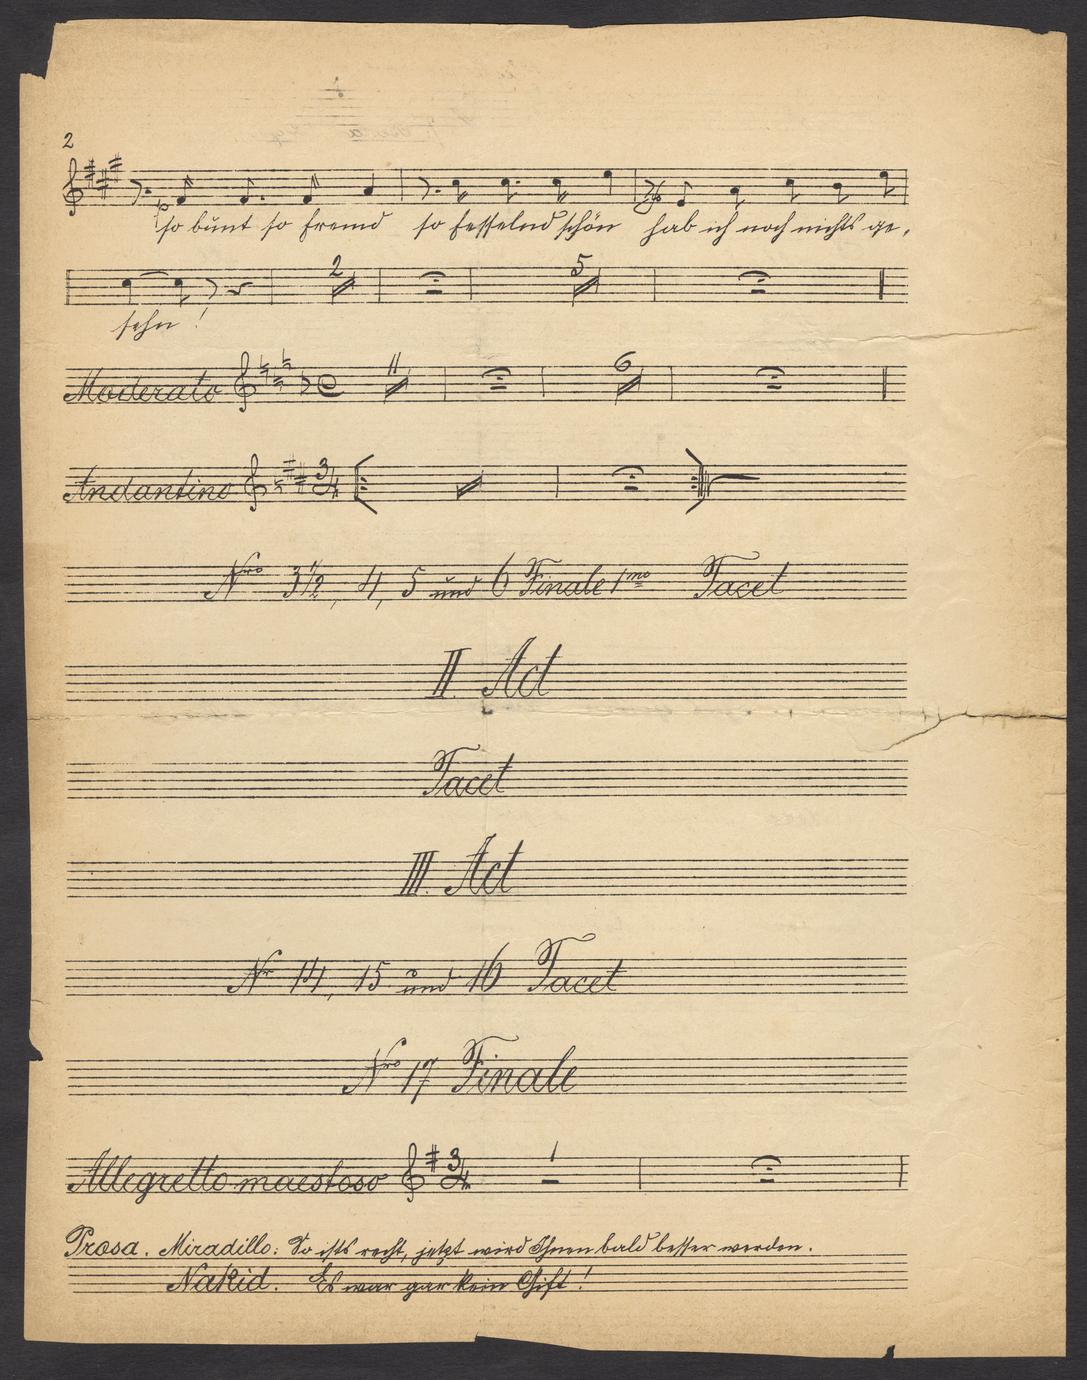 2
so bunt so fremd so fesselnd schön hab ich noch nichts ge,
2 5
sehn !
Moderato 11 6
Andantino 3/4
Nro 3 1/2, 4, 5 und 6 Finale 1mo Tacet
II. Act
Tacet
III. Act
Nr 14, 15 und 16 Tacet
Nro 17 Finale
Allegretto maestoso 3/4 1
Prosa. Miradillo: So ists recht, jetzt wird Ihnen bald besser werden.
Nakid. Es war gar kein Gift !